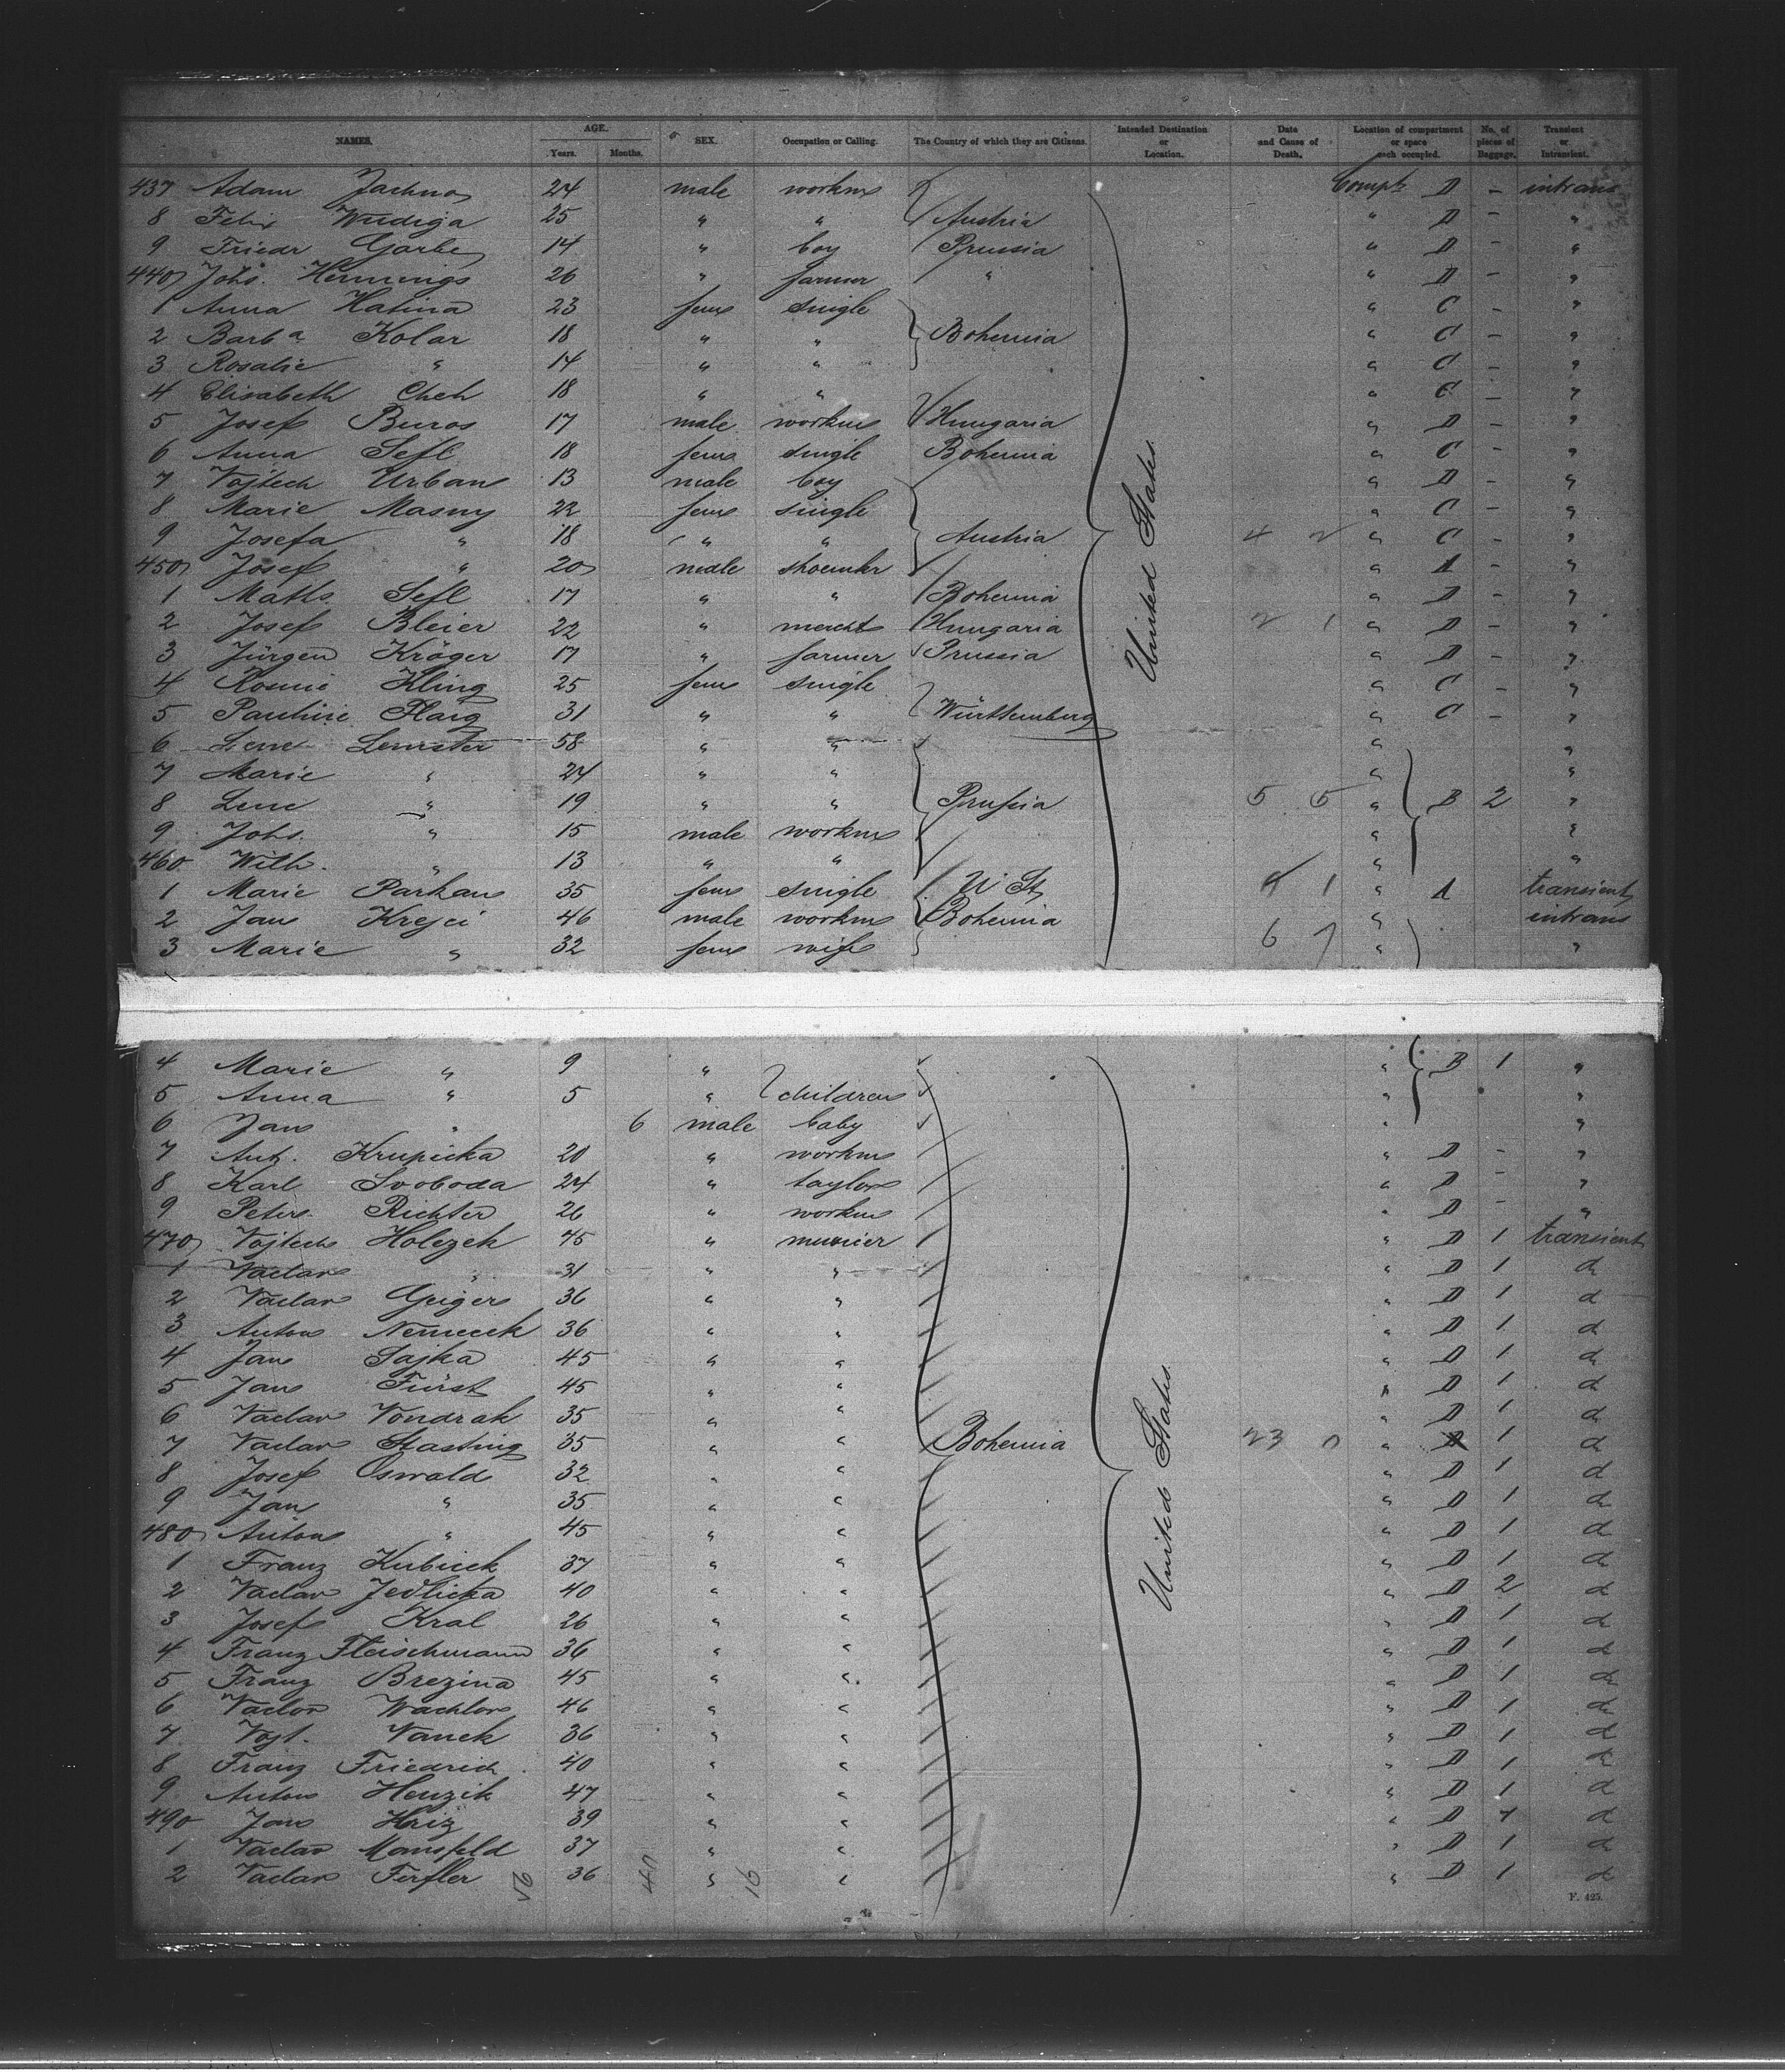 NAMES. AGE. Years. Months. SEX. Occupation or Calling. The Country of which they are Citizens. Intended Destination or Location. Date and Cause of Death. Location of compartment or space each occupied. No. of pieces of Baggage. Transient or Intransient.
437 Adam 24 male workm Compt D – intrans
8 Felix Wudiga 25 " " Austria " D – "
9 Friedr Garbe 14 " boy Prussia " D – "
440 Johs. Hennings 26 " farmer " " D – "
1 Anna Hatina 23 fem single " C – "
2 Barba Kolar 18 " " Bohemia " C – "
3 Rosalie " 14 " " " C – "
4 Elisabeth Cheh 18 " " " C – "
5 Josef Buros 17 male workm Hungaria " D – "
6 Anna Sefl 18 fem single Bohemia " C – "
7 Vojtech Urban 13 male boy " D – "
8 Marie Masny 22 fem single " C – "
9 Josefa " 18 " " Austria 4 2 " C – "
450 Josef " 20 male shoemker " A – "
1 Maths Sefl 17 " " Bohemia " D – "
2 Josef Bleier 22 " mercht Hungaria 2 1 " D – "
3 Jürgen Kröger 17 " farmer Prussia " D – "
United States
4 Rosine Kling 25 fem single " C – "
5 Pauline Flaig 31 " " Württemberg " C – "
6 Lene 58 " " " "
7 Marie " 24 " " " "
8 Lene " 19 " " Prussia 5 5 " B 2 "
9 Johs. " 15 male workm " "
460 Wilh. " 13 " " " "
1 Marie Parkan 35 fem single U St 1 " A transient
2 Jan Krejci 46 male workm Bohemia " intrans
3 Marie " 32 fem wife 6 7 " "
4 Marie " 9 " " B 1 "
5 Anna " 5 " children " "
6 Jan " 6 male baby " "
7 Ant. Krupicka 20 " workm " D – "
8 Karl Svoboda 24 " taylor " D – "
9 Peter Richter 26 " workm " D – "
470 Vojtech Holezek 45 " musicer " D 1 transient
1 Vaclav " 31 " " " D 1 d
2 Vaclav Geiger 36 " " " D 1 d
3 Anton Nemecek 36 " " " D 1 d
4 Jan Sajka 45 " " " D 1 d
5 Jan Fürst 45 " " " D 1 d
6 Vaclav Vondrak 35 " " " D 1 d
7 Vaclav Stastny 35 " " Bohemia 23 0 " D 1 d
8 Josef Oswald 32 " " " D 1 d
9 Jan " 35 " " " D 1 d
480 Anton " 45 " " " D 1 d
United States
1 Franz Kubicek 37 " " " D 1 d
2 Vaclav Jedlicka 40 " " " D 2 d
3 Josef Kral 26 " " " D 1 d
4 Franz Fleischmann 36 " " " D 1 d
5 Franz Brezina 45 " " " D 1 d
6 Vaclav Wachlov 46 " " " D 1 d
7 Vojt. Vanek 36 " " " D 1 d
8 Franz Friedrich 40 " " " D 1 d
9 Anton Henzik 47 " " " D 1 d
490 Jan Hriz 39 " " " D 1 d
1 Vaclav Mansfeld 37 " " " D 1 d
2 Vaclav Ferfler 36 " " " D 1 d
16
F. 425.